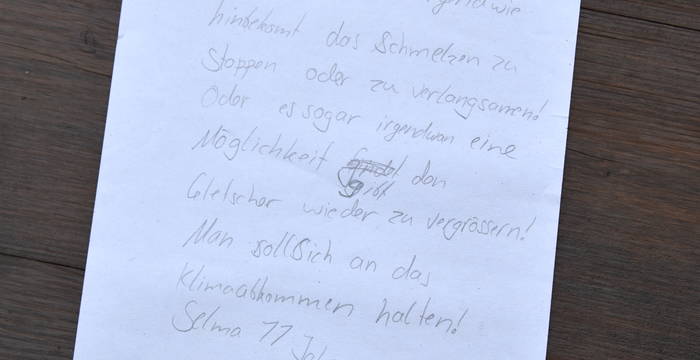 irgendwie
hinbekommt das Schmelzen zu
Stoppen oder zu verlangsamen!
Oder es sogar irgendwan eine
Möglichkeit gibt den
Gletscher wieder zu vergrössern!
Man sollsich an das
Klimaabkommen halten!
Selma 11